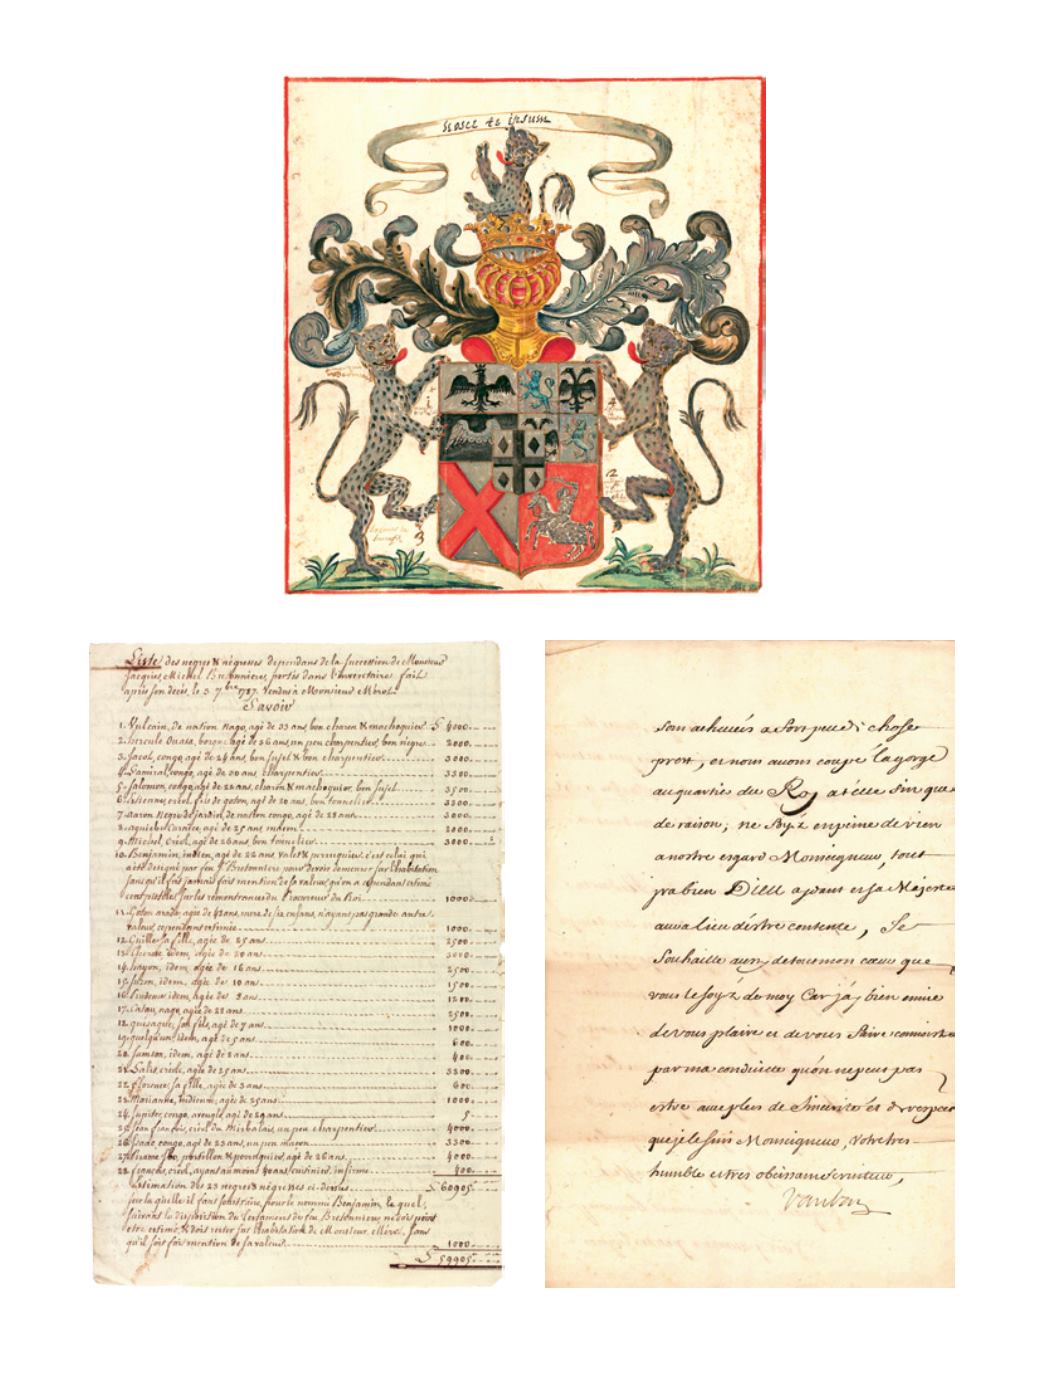 Nosce te ipsum
1
4
2
3
Liste des negres & négresses dependans de la Succession de Monsieur
Jacques Michel Bretonniere, portés dans l'inventaire fait
après son decès, le 3 7.bre 1787. Vendus à Monsieur Mérol
Savoir
1. Vulcain, de nation nago, agé de 33 ans, bon charon & machoquier 4000
2. hercule Ouasa, borgne agé de 36 ans, un peu charpentier, bon négre 2000
3. Jacob, congo, agé de 24 ans, bon sujet & bon charpentier 3000
4. congo, agé de 20 ans charpentier 3300
5. Salomon, congo, agé de 22 ans, charon & machoquier, bon sujet 3500
6. Etienne, créol, fils de goton, agé de 20 ans, bon tonnelier 3300
7. Aaron Negre de jardin, de nation congo, agé de 28 ans 3000
8. agé de 25 ans 2000
9. Michel, créol, agé de 26 ans, bon tonnelier 3000
10. Benjamin, indien, agé de 22 ans, valet & peruquier, c'est celui qui
a été designé par feu S. Bretonniere pour devoir demeurer sur l'habitation
sans qu'il soit jamais fait mention de sa valeur, qu'on a cependant estimé
cent pistoles sur les remontrances du Procureur du Roi 1000
11. Goton arada, agée de 42 ans, mere de six enfans, n'ayant pas grande autre
valeur, cependant estimée 1000
12. sa fille, agée de 25 ans 2500
13. idem, agée de 20 ans 3000
14. idem, agée de 16 ans 2500
15. Suzon, idem, agée de 10 ans 1500
16. idem, agée de 8 ans 1200
17. nago, agée de 22 ans 2500
18. son fils, agé de 7 ans 1000
19. quelqu'un, idem, agé de 5 ans 600
20. Samson, idem, agé de 2 ans 400
21. créole, agée de 25 ans 3300
22. Florence sa fille, agée de 3 ans 600
23. Marianne, indienne, agée de 25 ans 1000
24. Jupiter, congo, aveugle, agé de 29 ans 5
25. Jean françois, créol du Mirbalais, un peu charpentier 4000
26. Isaac, congo, agé de 23 ans, un peu maçon 3300
27. Ibo, postillon & peruquier, agé de 26 ans 4000
28. François, créol, ayant au moins 40 ans, cuisinier, infirme 400
Estimation des 23 negres & négresses ci-dessus 60905
sur la quelle il faut soustraire, pour le nommé Benjamin, le quel,
suivant la disposition du testament du feu Bretonniere ne doit point
etre estimé, & doit rester sur l'habitation de Monsieur Mérol, sans
qu'il soit fait mention de sa valeur 1000
59905
sont achevées a fort peu de chose
prest, et nous avons coupé la gorge
au quartier du Roy a telle fin que
de raison; ne soyéz en peine de rien
a nostre esgard Monseigneur, tout
ira bien Dieu aydant et sa Majesté
aura lieu d'estre contente, Je
souhaitte aussy de tout mon cœur que
vous le soyéz de moy car j'ay bien envie
de vous plaire et de vous faire connoistre
par ma conduitte qu'on ne peut pas
estre avec plus de sincerité et de respect
que je le suis Monseigneur, Votre tres
humble et tres obeissant serviteur,
Vauban